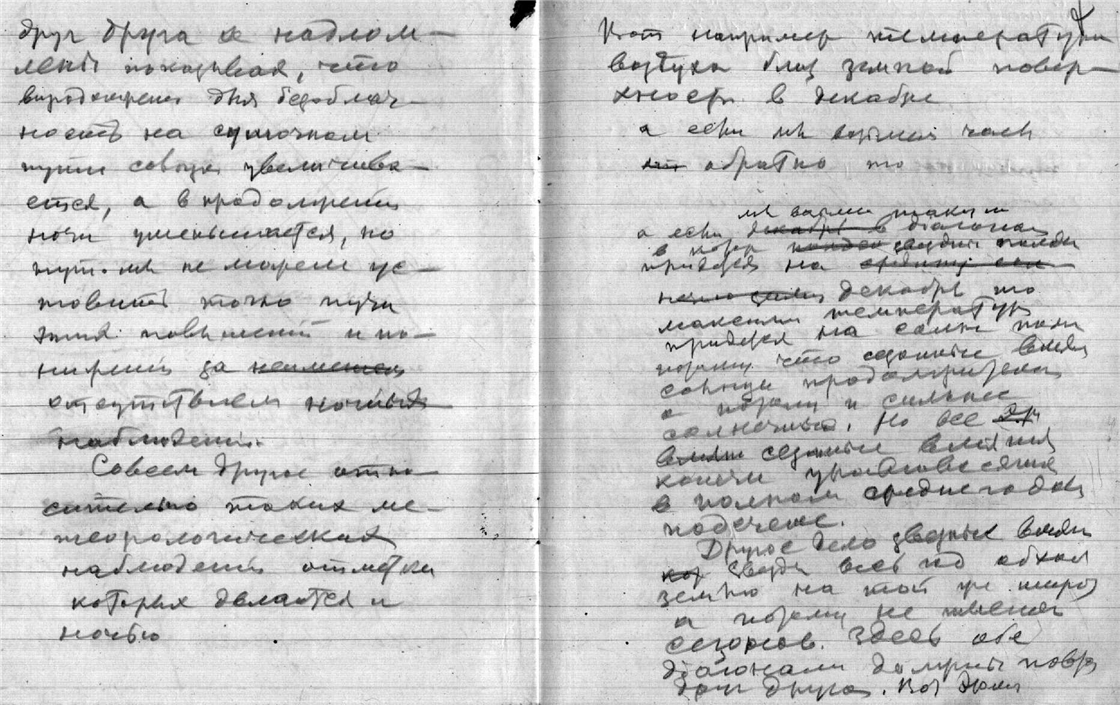 друг друга и надлом-
лены показывая, что
в продолжении дня безоблач-
ность на суточном
пути солнца увеличива-
ется, а в продолжении
ночи уменьшается, но
тут мы не можем ус-
товить точно пути
этих повышений и по-
нижений за
отсутствием ночных
наблюдений.
Совсем другое отно-
сительно таких ме-
теорологических
наблюдений отметки
которых делаются и
ночью
Вот например температура
воздуха близ земной повер-
хности в декабре
а если мы возьмем часы
обратно то
мы возьмем такую
а если декабрь в диагонали
в полдень
придется на
декабрь то
максимум температуры
придется на самый полдень
потому что сезонные влияния
солнца продолжительны
а потому и сильнее
солночных. Но все
влиян сезонные влияния
конечн уравновесятся
в полном среднегодовом
подсчете.
Другое дело звездные влияния
звезды весь год обход
землю на той же широте
а потому не имеют
сезонов. Здесь обе
диагонали должны повтор
друг друга. Вот